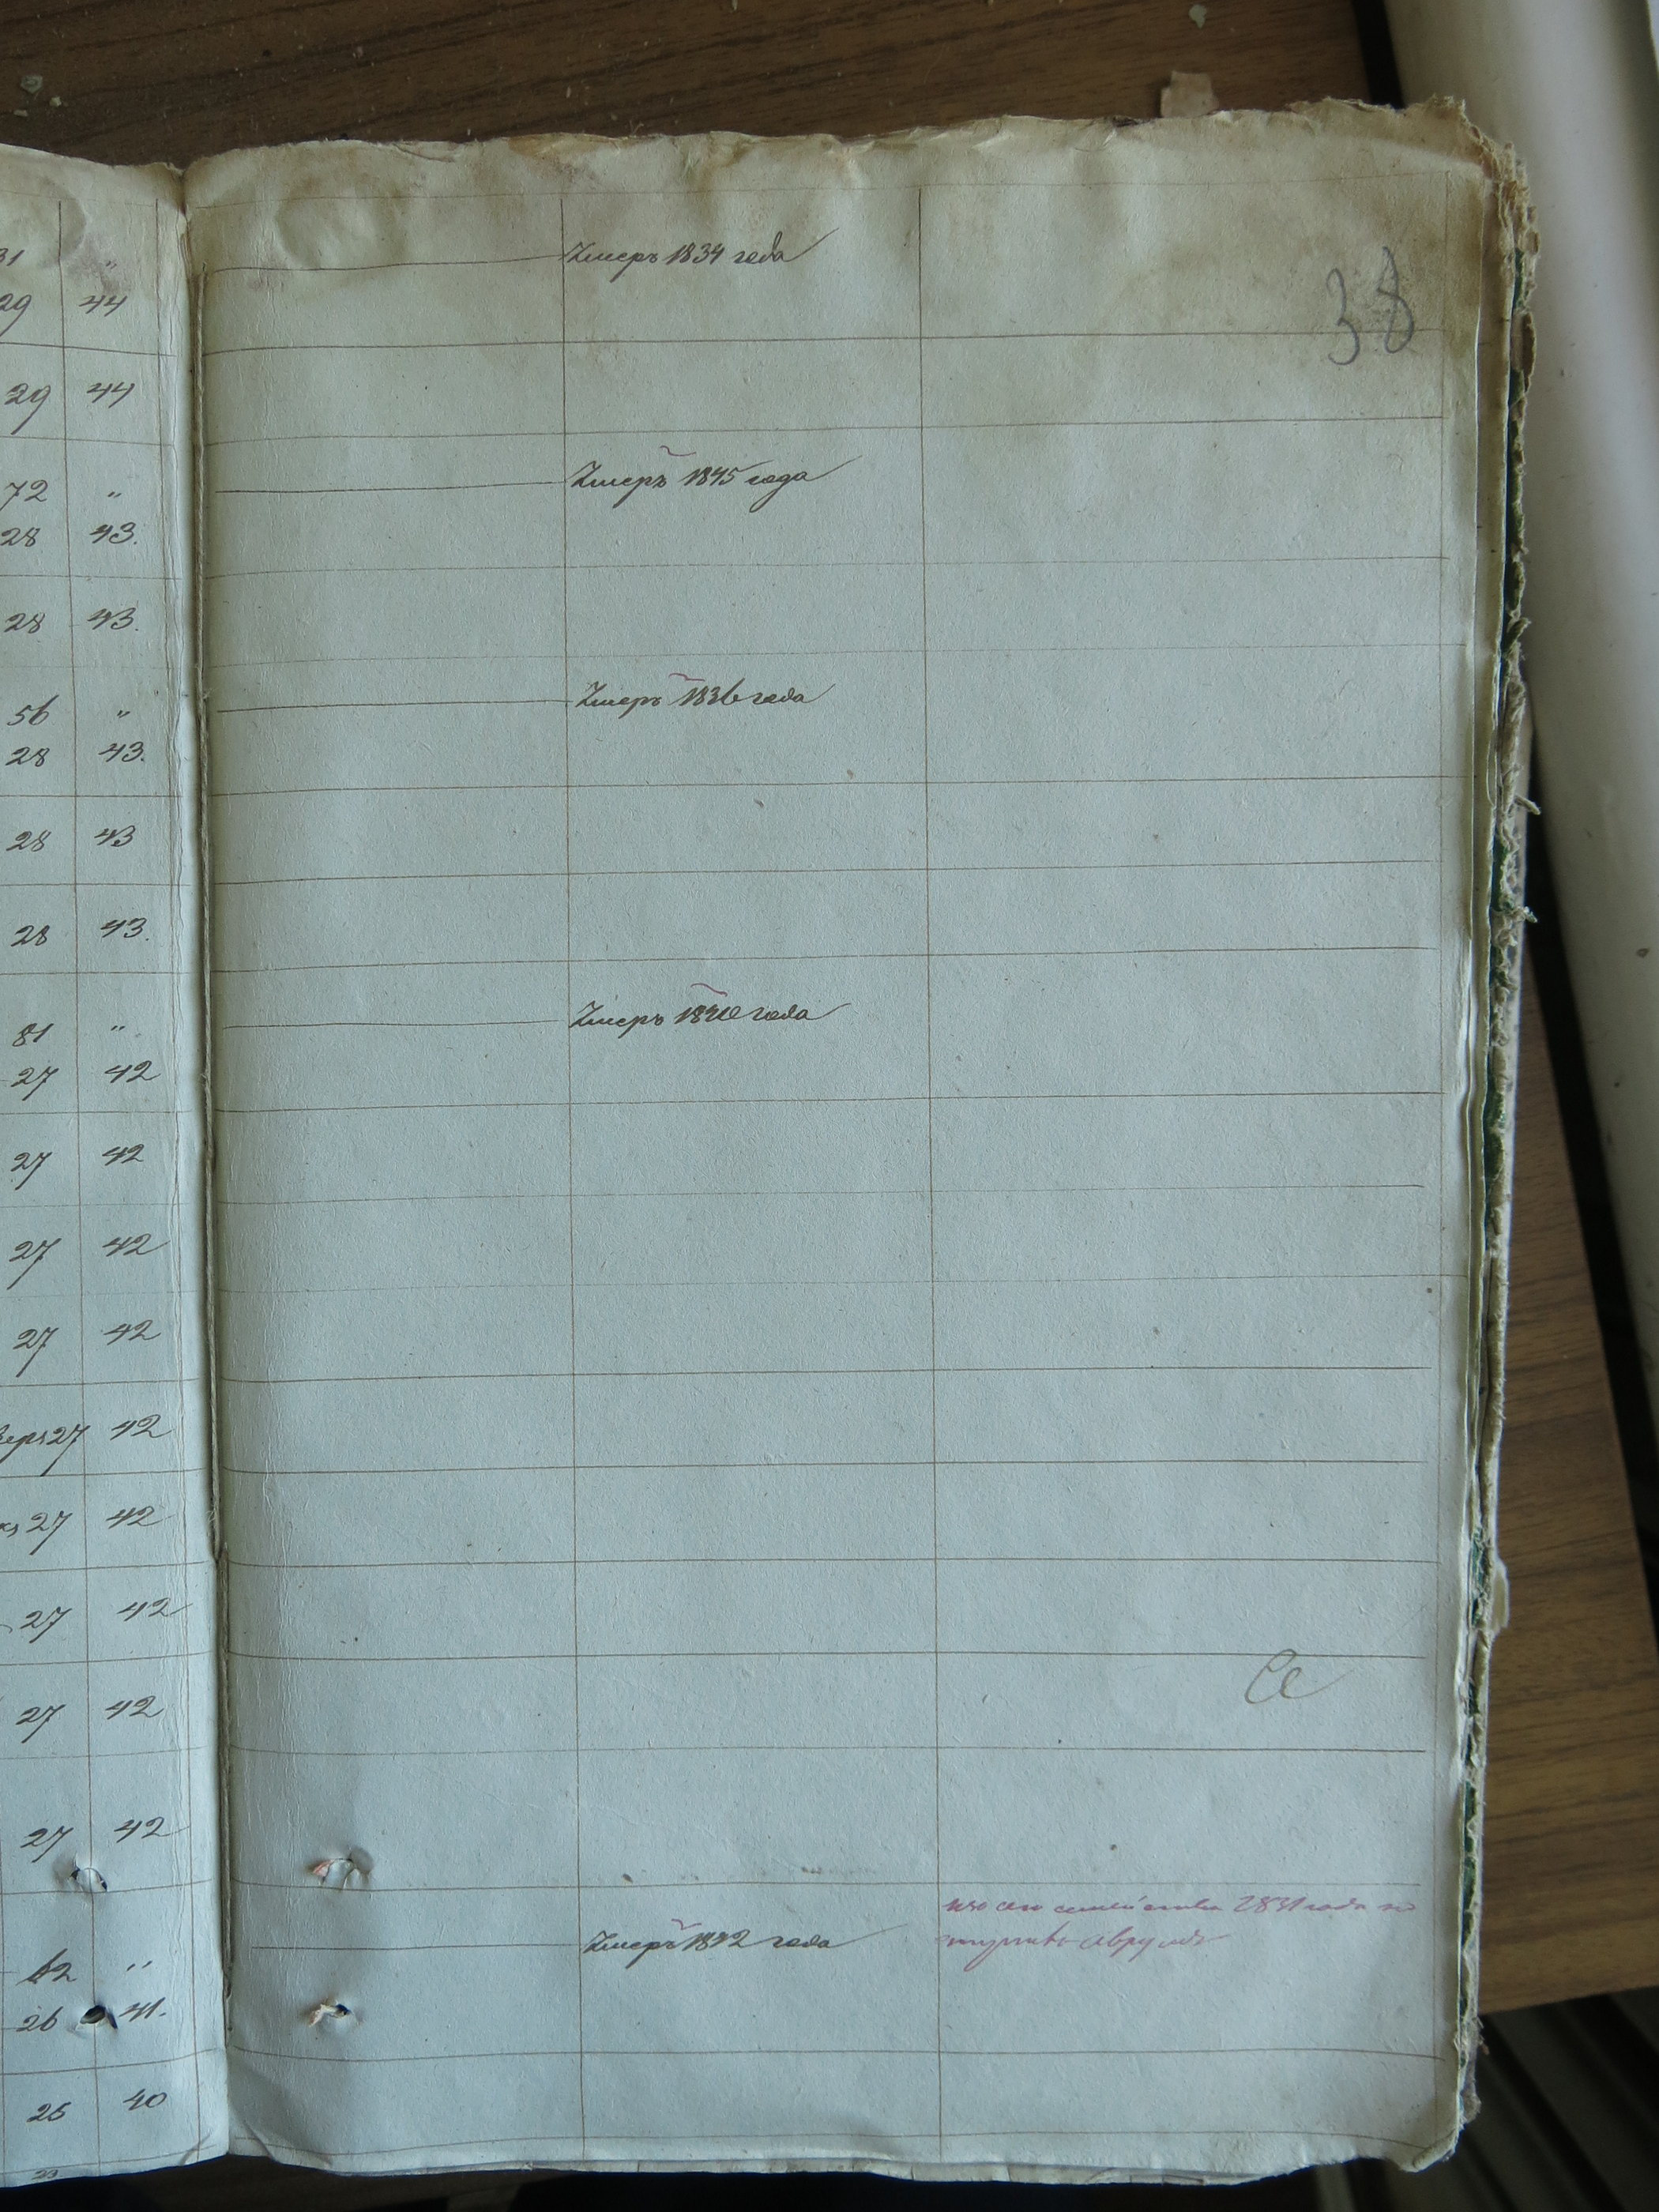 31 "
Умеръ 1834 года
38
29 44
29 44
72 "
Умеръ 1845 года
28 43.
28 43.
56 "
Умеръ 1836 года
28 43.
28 43
28 43.
81 "
Умеръ 1840 года
27 42
27 42
27 42
27 42
27 42
27 42
27 42
27 42
27 42
изъ сего семейства 1831 года
62 "
Умеръ 1842 года
26 41.
26 40